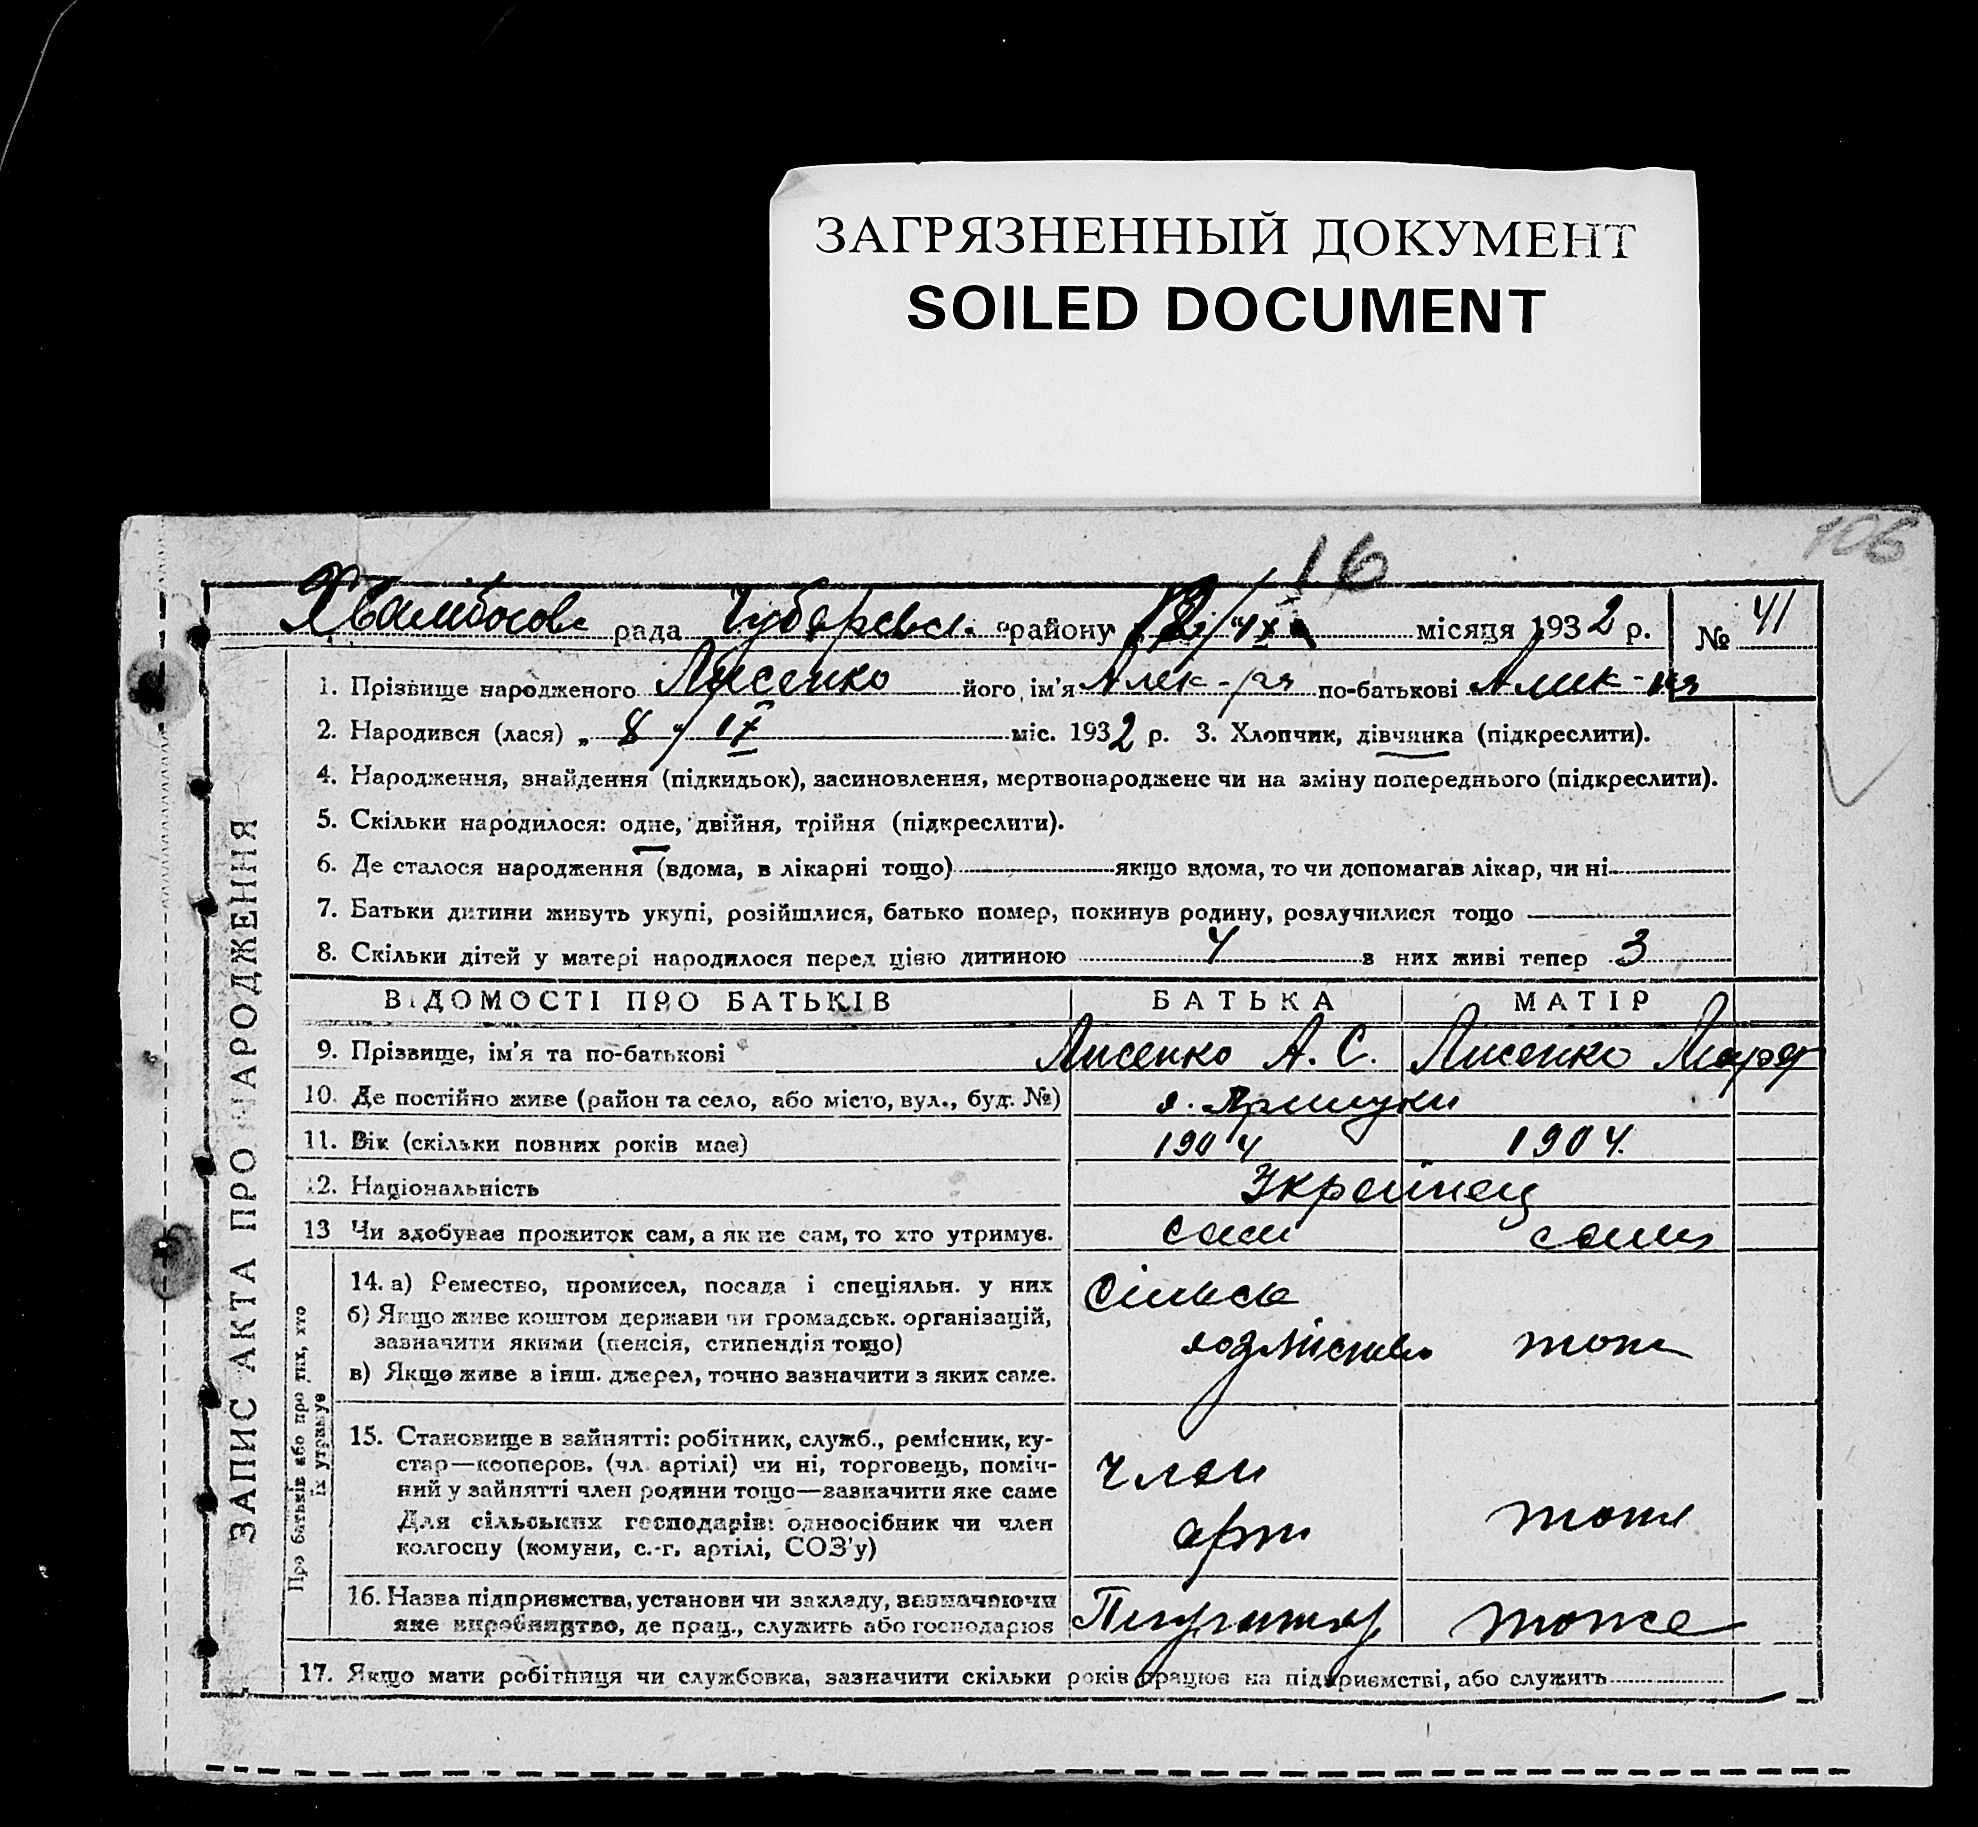 ЗАГРЯЗНЕННЫЙ ДОКУМЕНТ
SOILED DOCUMENT
106
16
рада Чубарєвсл. району місяця 1932 р. № 41
1. Прізвище народженого Лисенко його ім'я Алек-ра по-батькові
2. Народився (лася) „ 8 " IX міс. 1932 р. 3. Хлопчик, дівчинка (підкреслити).
4. Народження, знайдення (підкидьок), засиновлення, мертвонароджене чи на зміну попереднього (підкреслити).
5. Скільки народилося: одне, двійня, трійня (підкреслити).
6. Де сталося народження (вдома, в лікарні тощо) якщо вдома, то чи допомагав лікар, чи ні
7. Батьки дитини живуть укупі, розійшлися, батько помер, покинув родину, розлучилися тощо
8. Скільки дітей у матері народилося перед цією дитиною 4 з них живі тепер 3
ВІДОМОСТІ ПРО БАТЬКІВ БАТЬКА МАТІР
9. Прізвище, ім'я та по-батькові Лисенко А. С. Лисенко
10. Де постійно живе (район та село, або місто, вул., буд. №)
11. Вік (скільки повних років має) 1904 1904.
12. Національність Украйнец
13 Чи здобуває прожиток сам, а як не сам, то хто утримує. сам сама
14. а) Ремество, промисел, посада і спеціяльн. у них
б) Якщо живе коштом держави чи громадськ. організацій,
зазначити якими (пенсія, стипендія тощо)
в) Якщо живе з інш. джерел, точно зазначити з яких саме.
Сільсь
тоже
15. Становище в зайнятті: робітник, служб., ремісник, ку-
стар—кооперов. (чл. артілі) чи ні, торговець, поміч-
ний у зайнятті член родини тощо—зазначити яке саме
Для сільських господарів: одноосібник чи член
колгоспу (комуни, с.-г. артілі, СОЗ'у)
член
арт
тоже
16. Назва підприємства, установи чи закладу, зазначаючи
яке виробництво, де прац., служить або господарює
тоже
17. Якщо мати робітниця чи службовка, зазначити скільки років працює на підприємстві, або служить
ЗАПИС АКТА ПРО НАРОДЖЕННЯ
Про батьків або про тих, хто
їх утримує